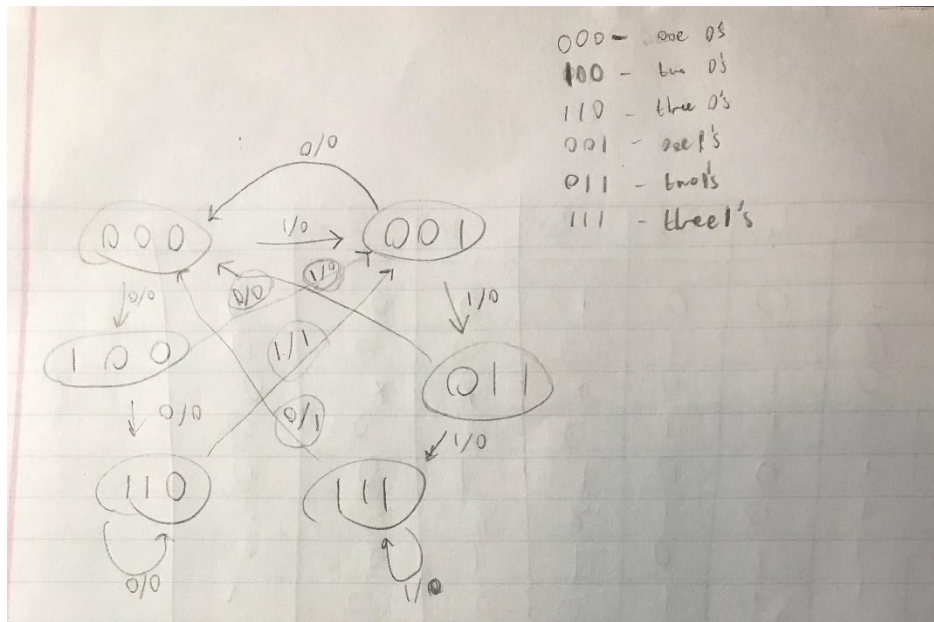 000 - one 0's
100 - two 0's
110 - three 0's
001 - one 1's
011 - two 1's
111 - three 1's
0/0
000
1/0
001
0/0
0/0
1/0
1/0
100
1/1
011
0/0
1/0
1/0
110
111
0/0
1/